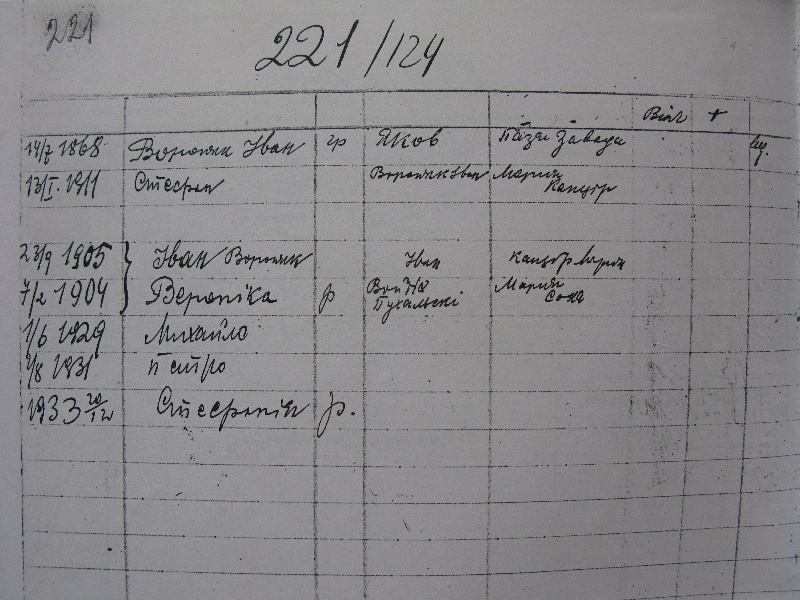 221
221/124
Вінч +
14/7 1868 Вороняк Іван гр Яков Пазя Завада
13/I. 1911 Стефан Вороняк Іван Мария
Канцір
23/9 1905 } Іван Вороняк Іван Канцір Марія
7/2 1904 Вероніка р Мария
Пухальскі
1/6 1929 Михайло
1/8 1931 Петро
1933 20/12 Стефанія р.